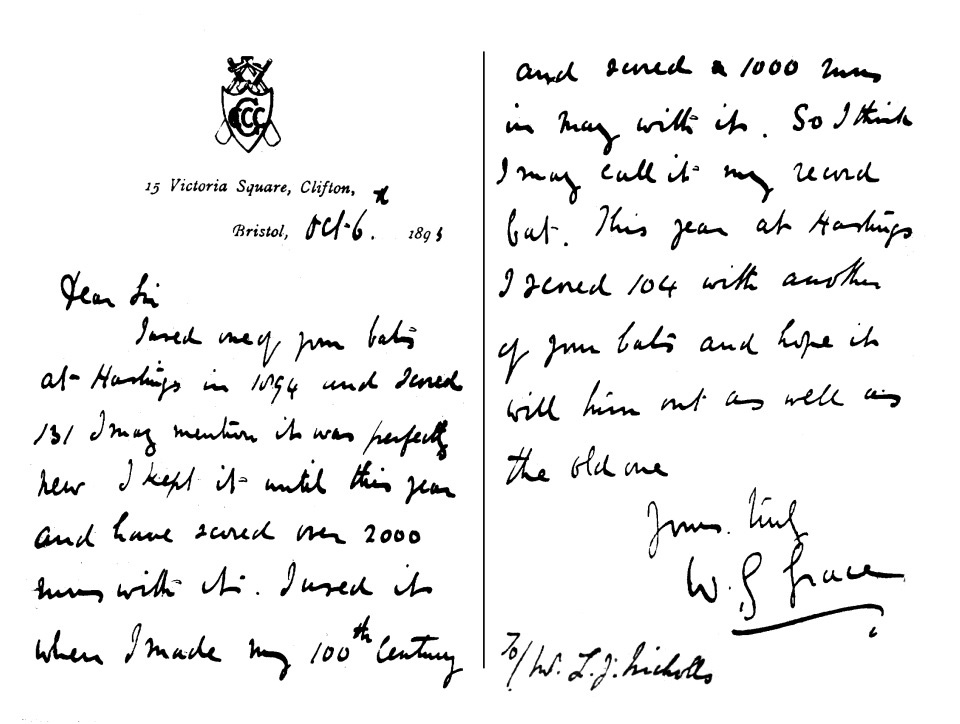 GCCC
15 Victoria Square, Clifton,
Bristol, Oct 6th 1895
Dear Sir
I used one of your bats
at Hastings in 1894 and scored
131 I may mention it was perfectly
new I kept it until this year
and have scored over 2000
runs with it. I used it
when I made my 100th Century
and scored a 1000 runs
in May with it. So I think
I may call it my record
bat. This year at Hastings
I scored 104 with another
of your bats and hope it
will turn out as well as
the old one
Yours truly
W. G Grace
To/ Mr. L. J. Nicholls